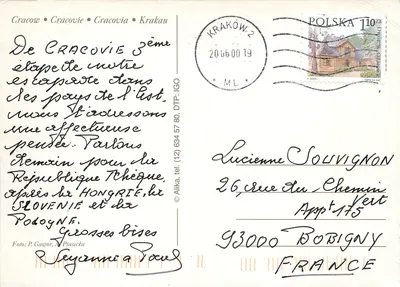 Cracow • Cracovie • Cracovia • Krakau
De CRACOVIE 3ème
étape de notre
escapade dans
les pays de l'Est,
nous t'adressons
une affectueuse
pensée. Partons
demain pour la
République Tchèque,
après la HONGRIE, la
SLOVENIE et la
POLOGNE.
Grosses bises
Suzanne a Paul
Foto: P. Gawor, Ptasucha
© Alika, tel. (12) 634 57 80, DTP: IGO
KRAKÓW 2
20.06.00 19
* ML *
POLSKA 1,10
Lucienne SOUVIGNON
26, rue du Chemin
Vert
Appt 175
93000 BOBIGNY
FRANCE